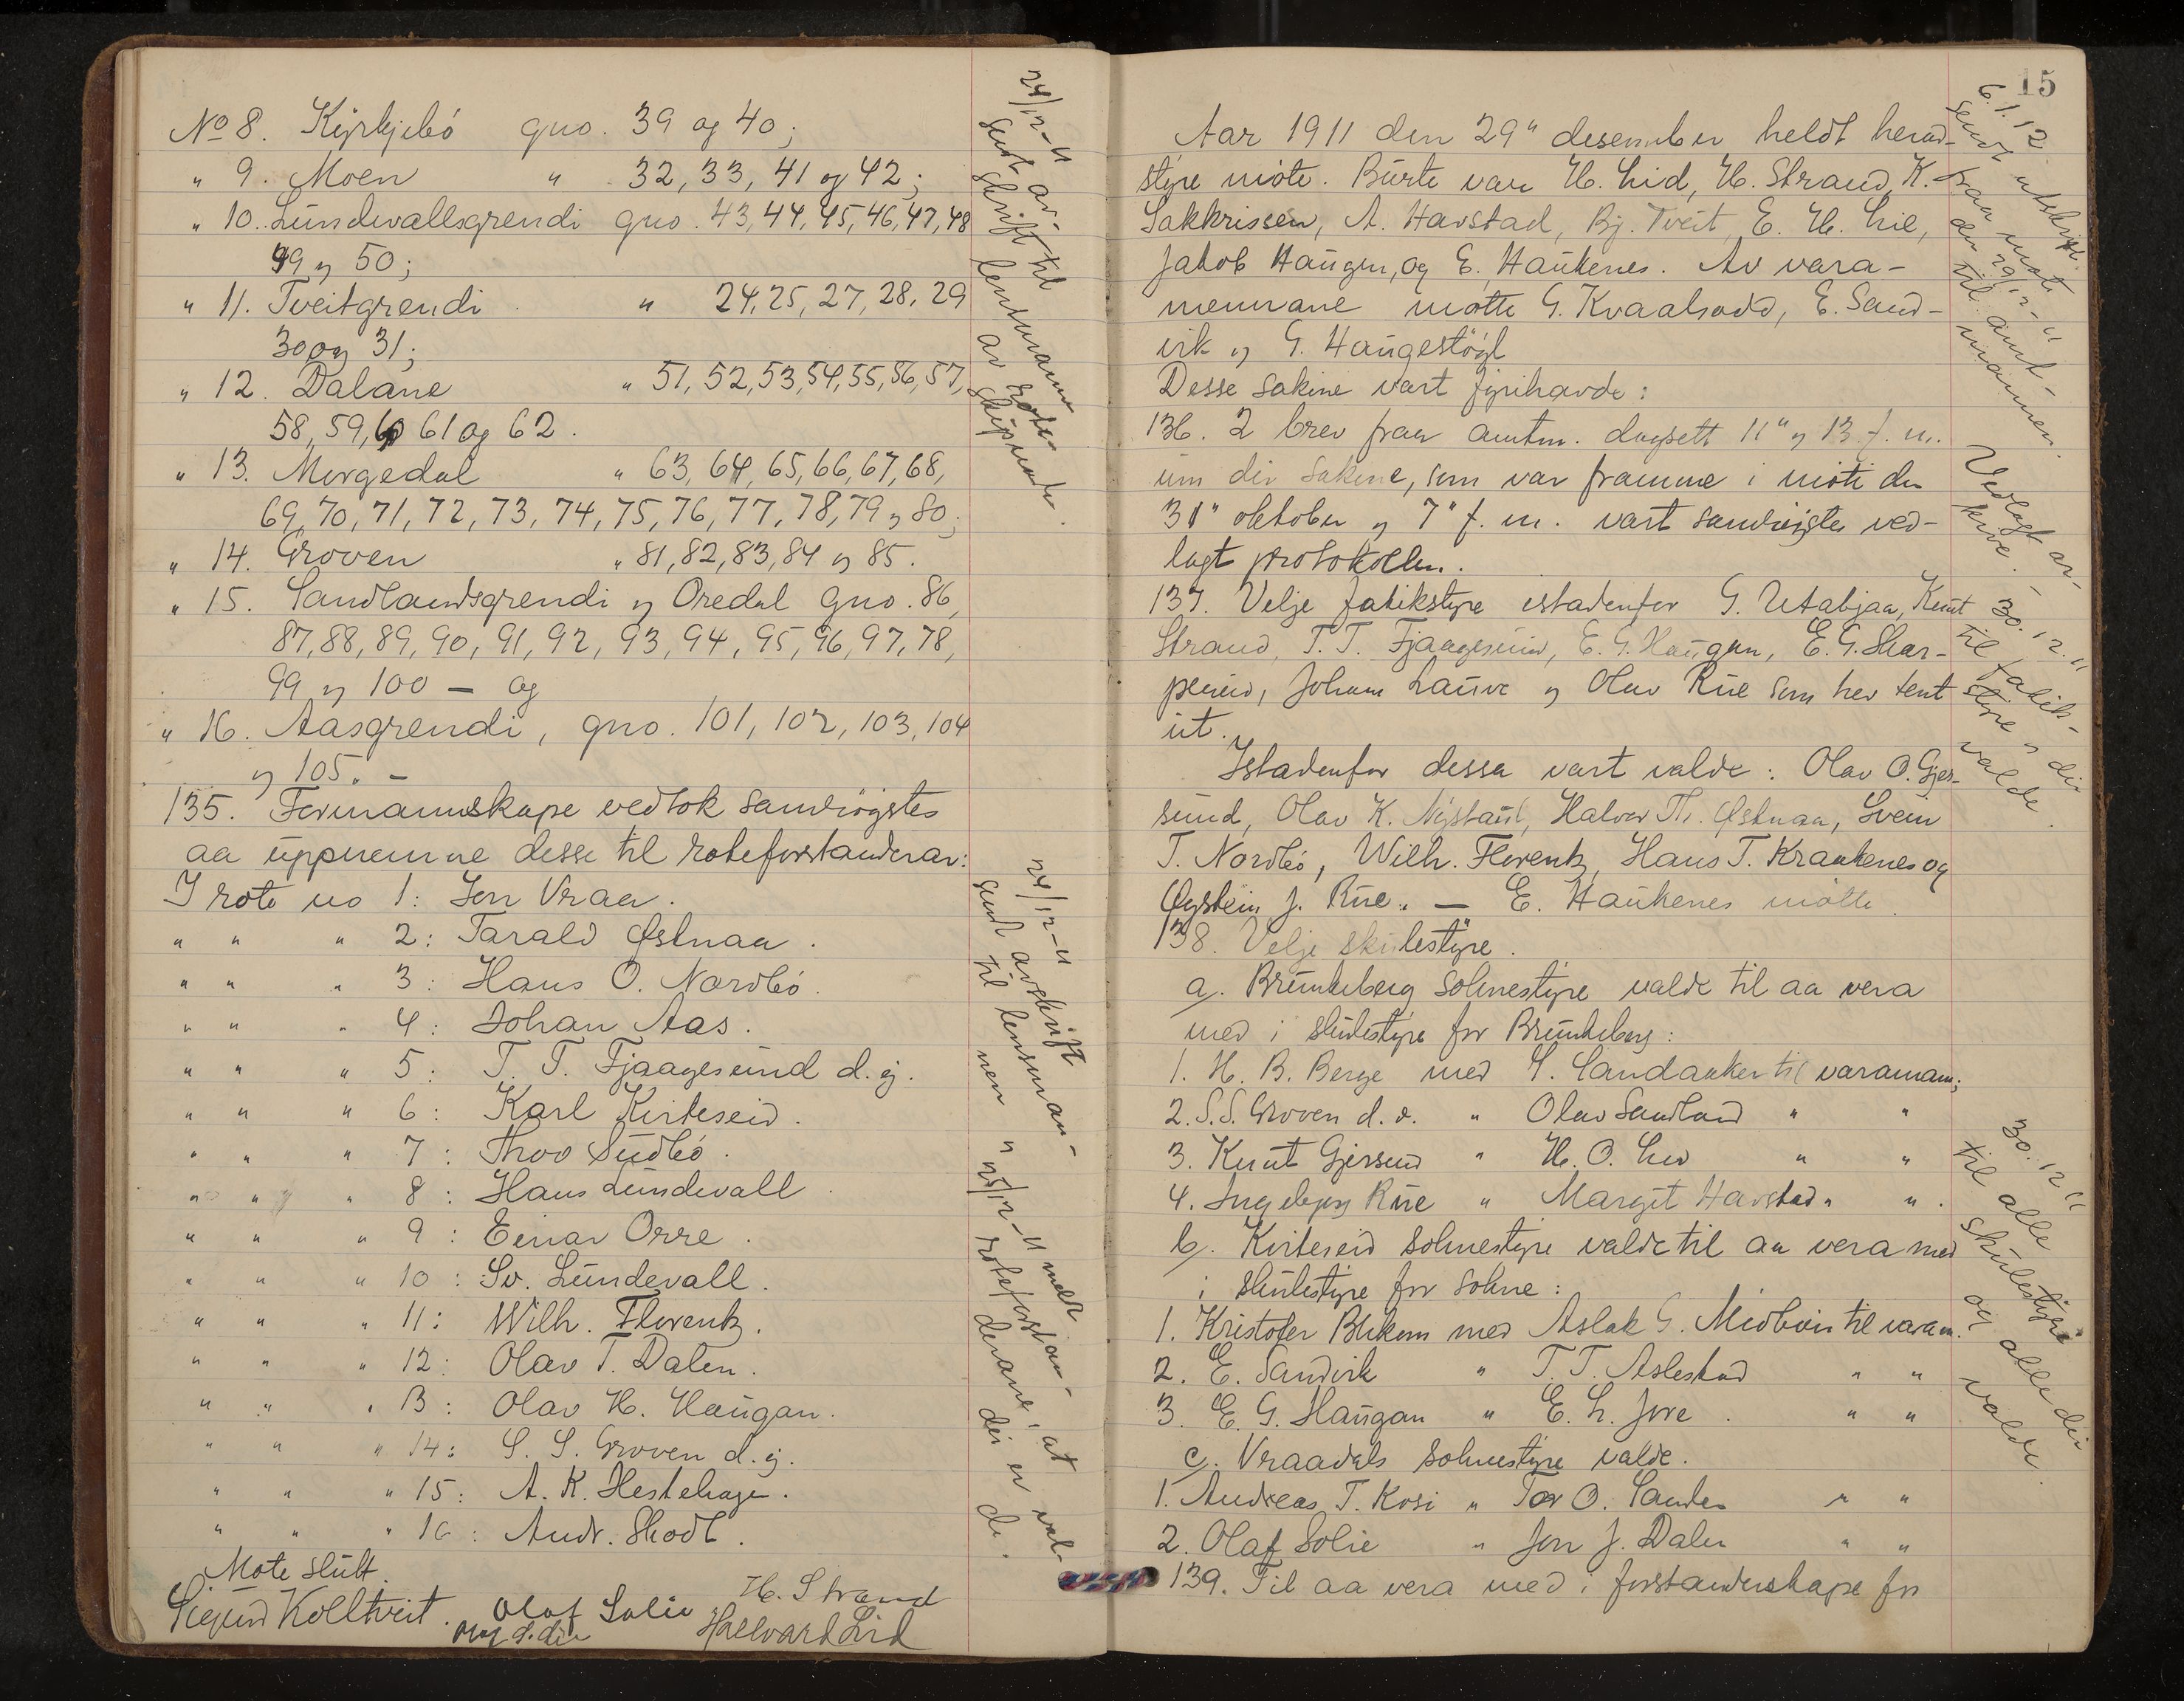 No 8. Kyrkjebö gno. 39 og 40;
" 9. Moen " 32, 33, 41 og 42;
" 10. Lundevallsgrendi gno. 43, 44, 45, 46, 47, 48
49 og 50;
" 11. Tveitgrendi " 24, 25, 27, 28, 29
30 og 31;
" 12. Dalane " 51, 52, 53, 54, 55, 56, 57,
58, 59, 60 61 og 62.
" 13. Morgedal " 63, 64, 65, 66, 67, 68,
69, 70, 71, 72, 73, 74, 75, 76, 77, 78, 79 og 80;
" 14. Groven " 81, 82, 83, 84 og 85.
" 15. Sandlandsgrendi og Oredal gno. 86,
87, 88, 89, 90, 91, 92, 93, 94, 95, 96, 97, 78,
99 og 100 — og
" 16. Aasgrendi, gno. 101, 102, 103, 104
og 105. —
135. Formannskape vedtok samrögstes
aa uppnemne desse til roteforstanderar:
I rote no 1: Jon Vraa.
" " " 2: Tarald Østnaa.
" " " 3: Hans O. Nordbö.
" " " 4: Johan Aas.
" " " 5: T. T. Fjaagesund d. y.
" " " 6: Karl Kviteseid.
" " " 7: Thov Sudbö.
" " " 8: Hans Lundevall.
" " " 9: Einar Orre.
" " " 10: Sv. Lundevall.
" " " 11: Wilh. Florentz.
" " " 12: Olav T. Dalen.
" " " 13: Olav H. Haugan.
" " " 14: S. S. Groven d. y.
" " " 15: A. K. Hestehage.
" " " 16: Andr. Skodt.
Möte slutt.
Sigurd Kolltveit. Olaf Solie H. Strand
Hallvard Lid
24/12-11
sent av-
skrift til
lensmann
av rote-
skipnade.
24/12-11
sent avskrift
til lensman-
nen og 25/12-11 meldt
roteforstan-
derane, at
dei er val-
de.
15
Aar 1911 den 29" desember heldt herad-
styre möte. Burte var H. Lid, H. Strand, K.
Sakkrissen, A. Havstad, Bj. Tveit, E. H. Lie,
Jakob Haugen, og E. Haukenes. Av vara-
mennane mötte G. Kvaalsodd, E. Sand-
vik og G. Haugestögl
Desse sakine vart fyrihavde:
136. 2 brev fraa amtm. dagsett 11" og 13 f. m.
um dei sakine, som var framme i möti den
31" oktober og 7" f. m. vart samrögstes ved-
lagt protokollen.
137. Velje fatikstyre istadenfor G. Utabjaa, Knut
Strand, T. T. Fjaagesund, E. G. Haugan, E. G. Skar-
peneid, Johan Lauve og Olav Rue som hev tent
ut.
Istadenfor dessa vart valde: Olav O. Gjer-
sund, Olav K. Nystaul, Halvor Th. Østnaa, Svein
T. Nordbö, Wilh. Florentz, Hans T. Kraakenes og
Øystein J. Rue. — E. Haukenes mötte.
138. Velje skulestyre.
a). Brunkeberg soknestyre valde til aa vera
med i skulestyre for Brunkeberg:
1. H. B. Berge med S. Landaaker til varamann;
2. S. S. Groven d. e. " Olav Sandland " "
3. Knut Gjersund " H. O. Lid " "
4. Ingebjorg Rue " Margit Havstad " ".
b). Kviteseid soknestyre valde til aa vera med
i skulestyre for sokne:
1. Kristofer Blikom med Aslak G. Midbøen til varam.
2. E. Sandvik " T. T. Aslestad " "
3. E. G. Haugan " E. L. Jore. " "
c). Vraadals soknestyre valde.
1. Andreas T. Kosi " Tor O. Sanden " "
2. Olaf Solie " Jon J. Dalen " "
139. Til aa vera med i forstanderskape for
6.1.12.
sendt utskrift
fraa möte
den 29/12-11
til amt-
mannen.
Vedlagt ar-
kive. —
30.12.11
til fatik-
styre og dei
valde.
30.12.11
til alle
skulestyri
og alle dei
valde.